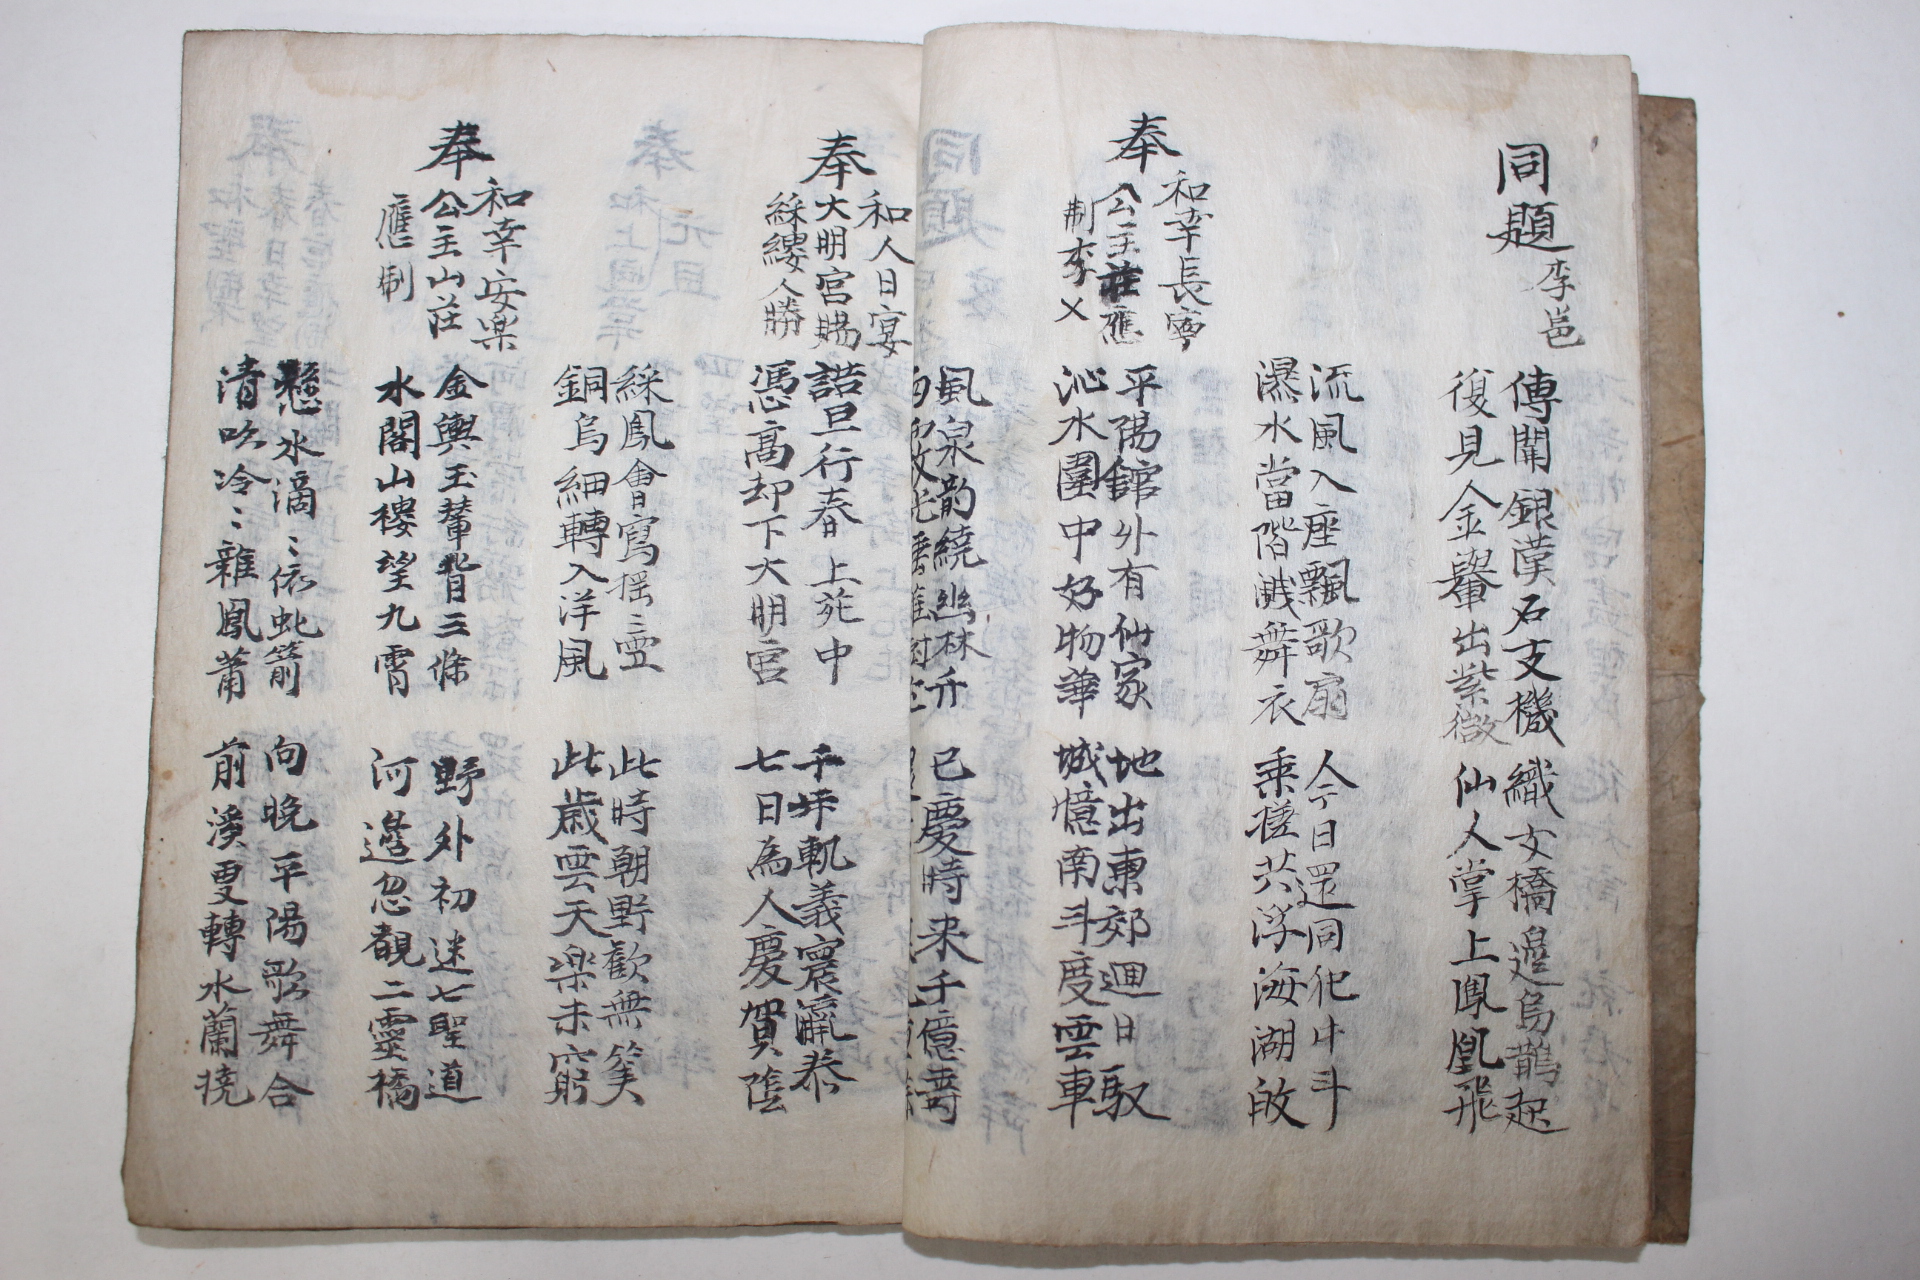 同題 李邕
傳聞銀漢石支機 織女橋邊烏鵲起
復見金轝出紫微 仙人掌上鳳凰飛
流風入座飄歌扇 今日還同犯牛斗
瀑水當階濺舞衣 乘槎共浮海潮
奉
和幸長寧
公主莊應
制 李乂
平陽舘外有仙家 地出東郊迴日馭
沁水園中好物華 城憶南斗度雲車
風泉韵繞幽林 已慶時来千億壽
奉
和人日宴
大明宮賜
綵縷人勝
詰旦行春上苑中 千坪軌義寰瀛泰
憑高却下大明宮 七日為人慶賀隆
綵鳳會寫搖〻 此時朝野歡無筭
銅烏細轉入洋風 此歲雲天樂未窮
奉
和幸安楽
公主山莊
應制
金輿玉輦背三條 野外初迷七聖道
水閣山樓望九霄 河邊忽覩二靈橋
懸水滴〻依虬箭 向晚平陽歌舞合
清吹冷〻雜鳳蕭 前溪更轉水蘭撓